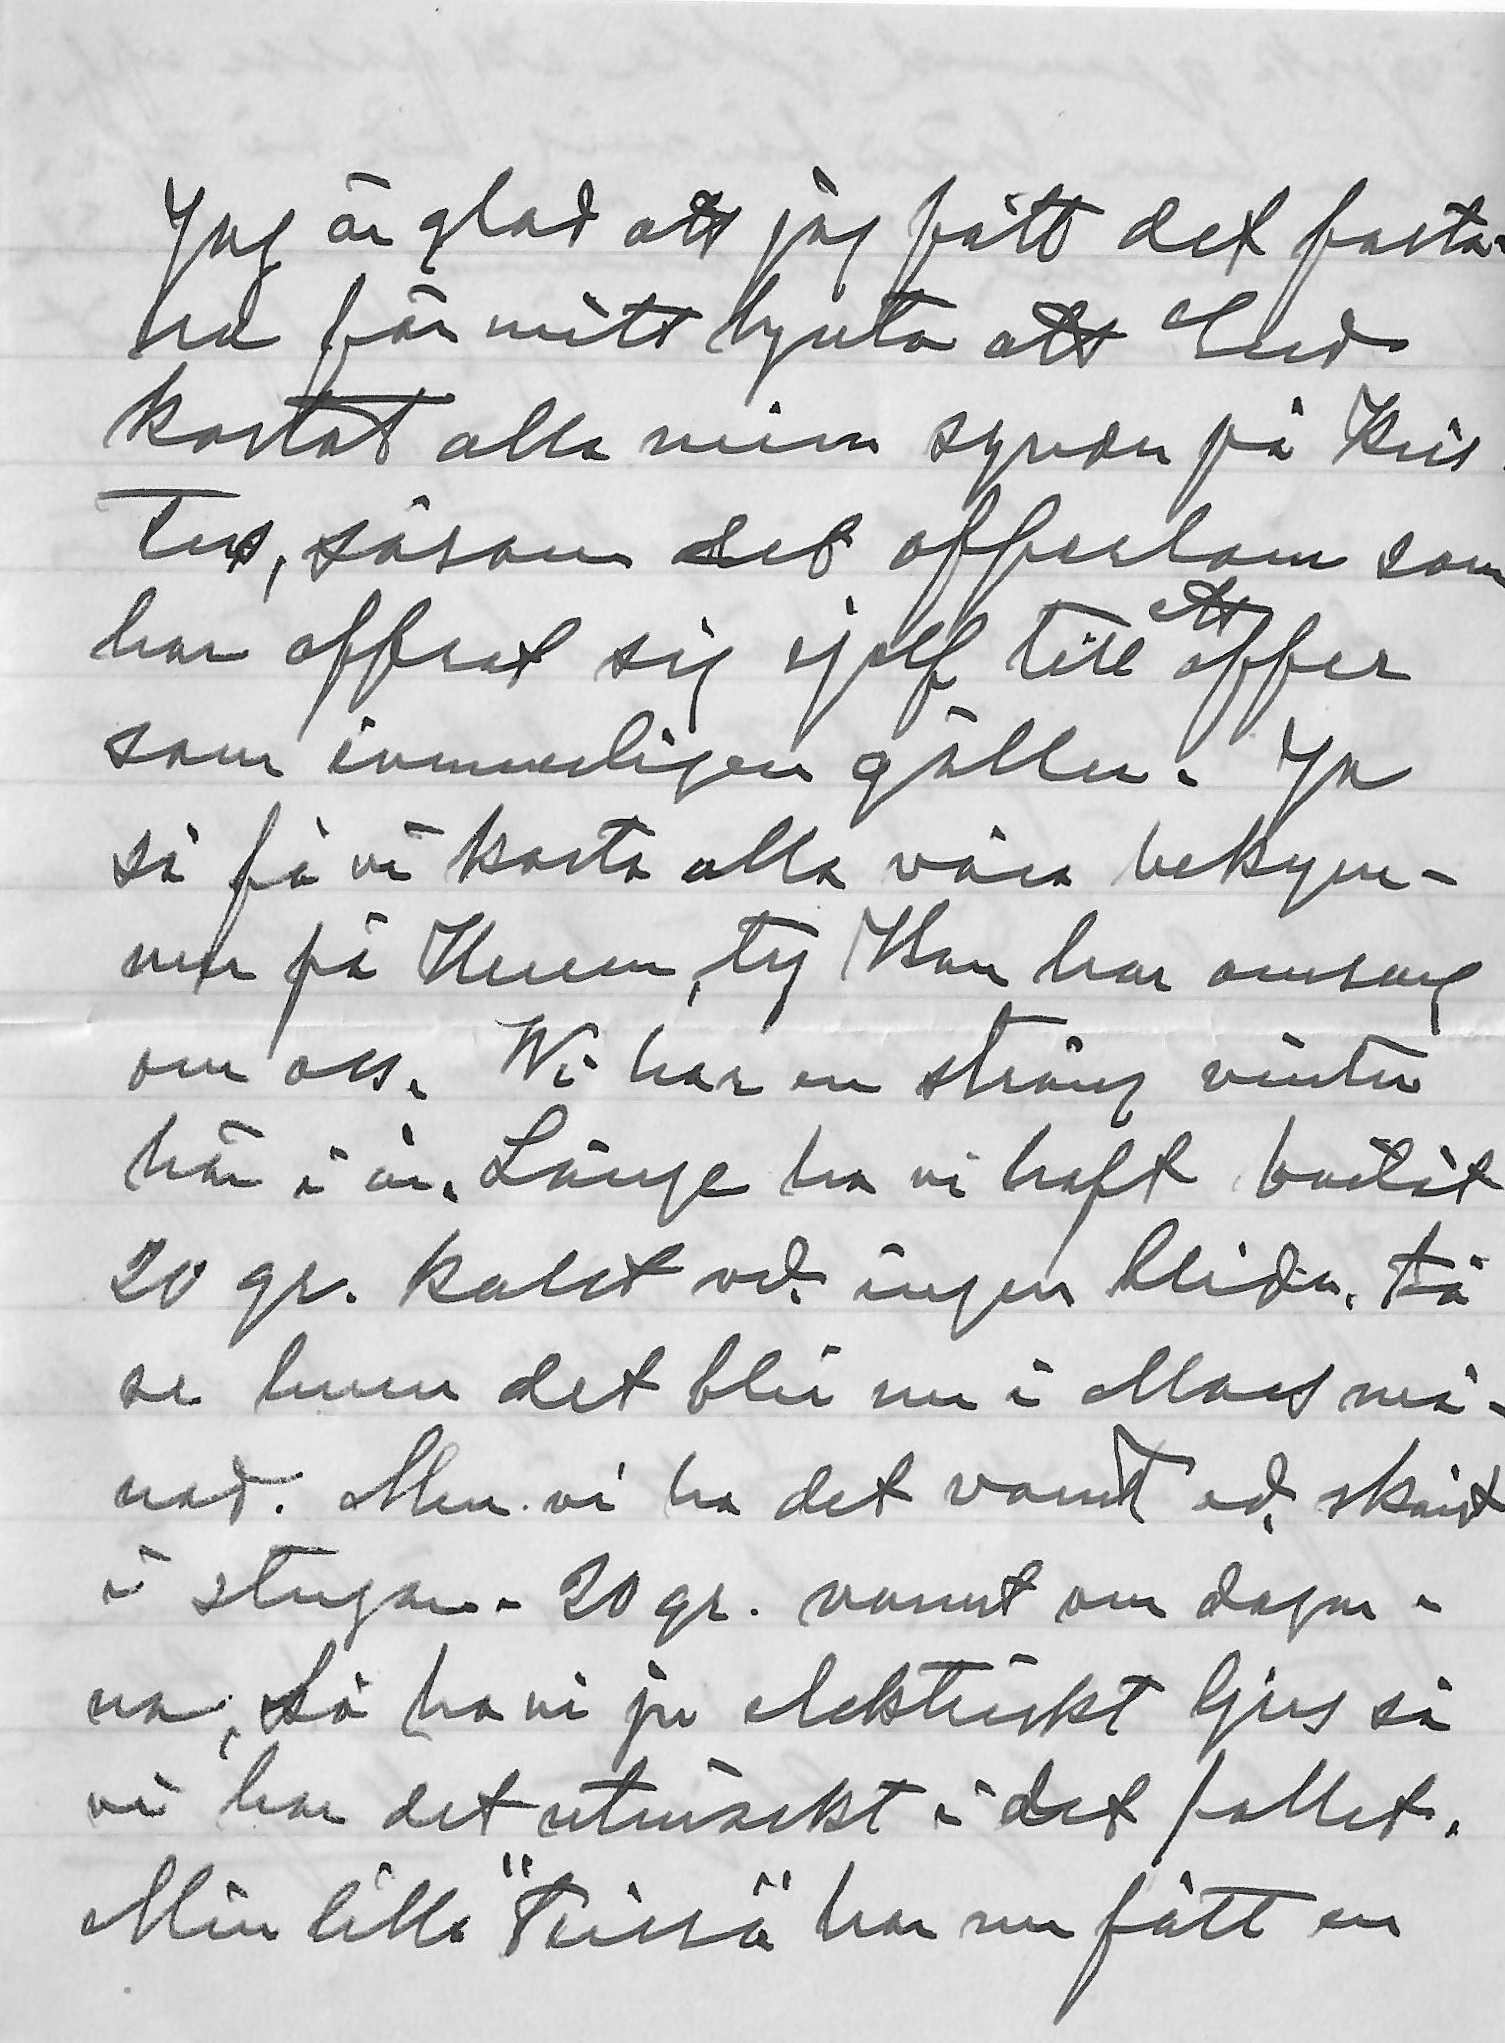 Jag är glad att jag fått det fasta
för mitt hjärta att Gud
kastat alla mina synder på Kris-
tus, såsom det offerlam som
har offrat sig sjelf till ett offer
som evinnerligen gäller. Ja
så få vi kasta alla våra bekym-
mer på Honom, ty Han har omsorg
om oss. Wi har en sträng vinter
här i år. Länge ha vi haft bortåt
20 gr. kallt och ingen blida. Få
se huru det blir nu i Mars må-
nad. Men vi ha det varmt och skönt
i stugan - 20 gr. varmt om dagar-
na, Så ha vi ju elektriskt ljus så
vi har det utmärkt i det fallet.
Min lilla "Sissa" har nu fått en